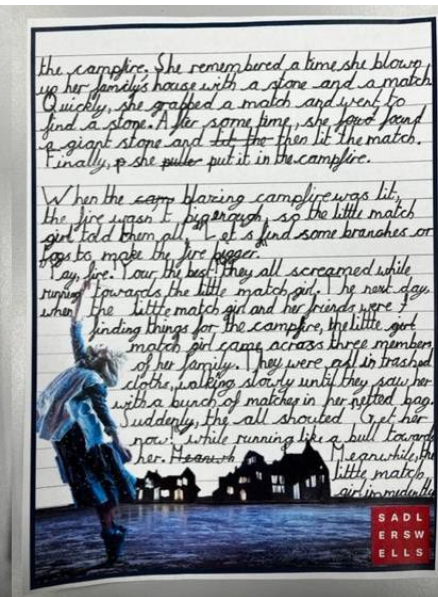 the campfire. She remembered a time she blown
up her family's house with a stone and a match
Quickly, she grabbed a match and went to
find a stone. After some time, she found
a giant stone and then lit the match.
Finally, she put it in the campfire.
When the blazing campfire was lit,
the fire wasn't big enough, so the little match
girl told them all, "Let's find some branches or
logs to make the fire bigger."
"Yay, fire! Your the best!" they all screamed while
running towards the little match girl. The next day,
when the little match girl and her friends were
finding things for the campfire, the little
match girl came across three members
of her family. They were all in trashed
clothe, walking slowly until they saw her
with a bunch of matches in her netted bag.
Suddenly, the all shouted "Get her
now!" while running like a bull towards
her. Meanwhile, the
little match
girl
SADL
ERSW
ELLS